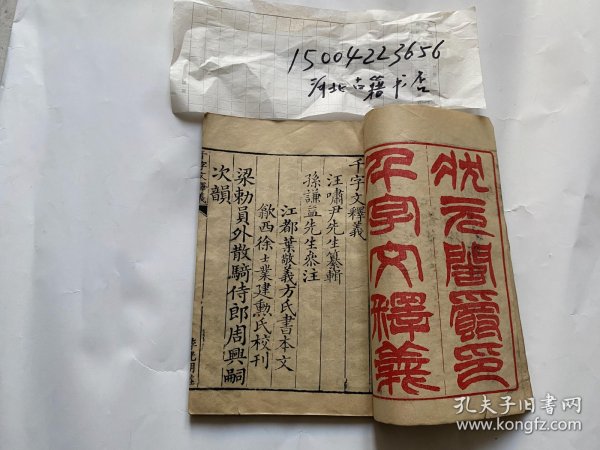 15004223656
河北古籍书店
狀元閣爵記
千字文釋義
千字文釋義
汪嘯尹先生纂輯
孫謙益先生叅注
江都葉敬義方氏書本文
歙西徐士業建勲氏校刊
梁勅員外散騎侍郎周興嗣
次韻
千字文釋義
孔夫子旧书网
www.kongfz.com